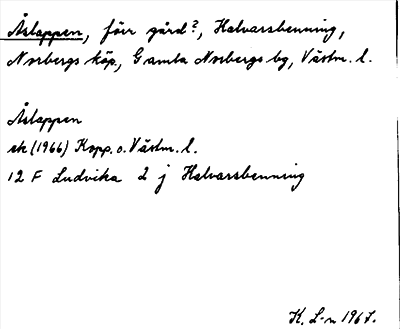 Åslappen, förr gård?, Halvarsbenning,
Norbergs köp., Gamla Norbergs bg, Västm. l.
Åslappen
ek (1966) Kopp. o. Västm. l.
12 F Ludvika 2 j Halvarsbenning
K. L-n 1967.